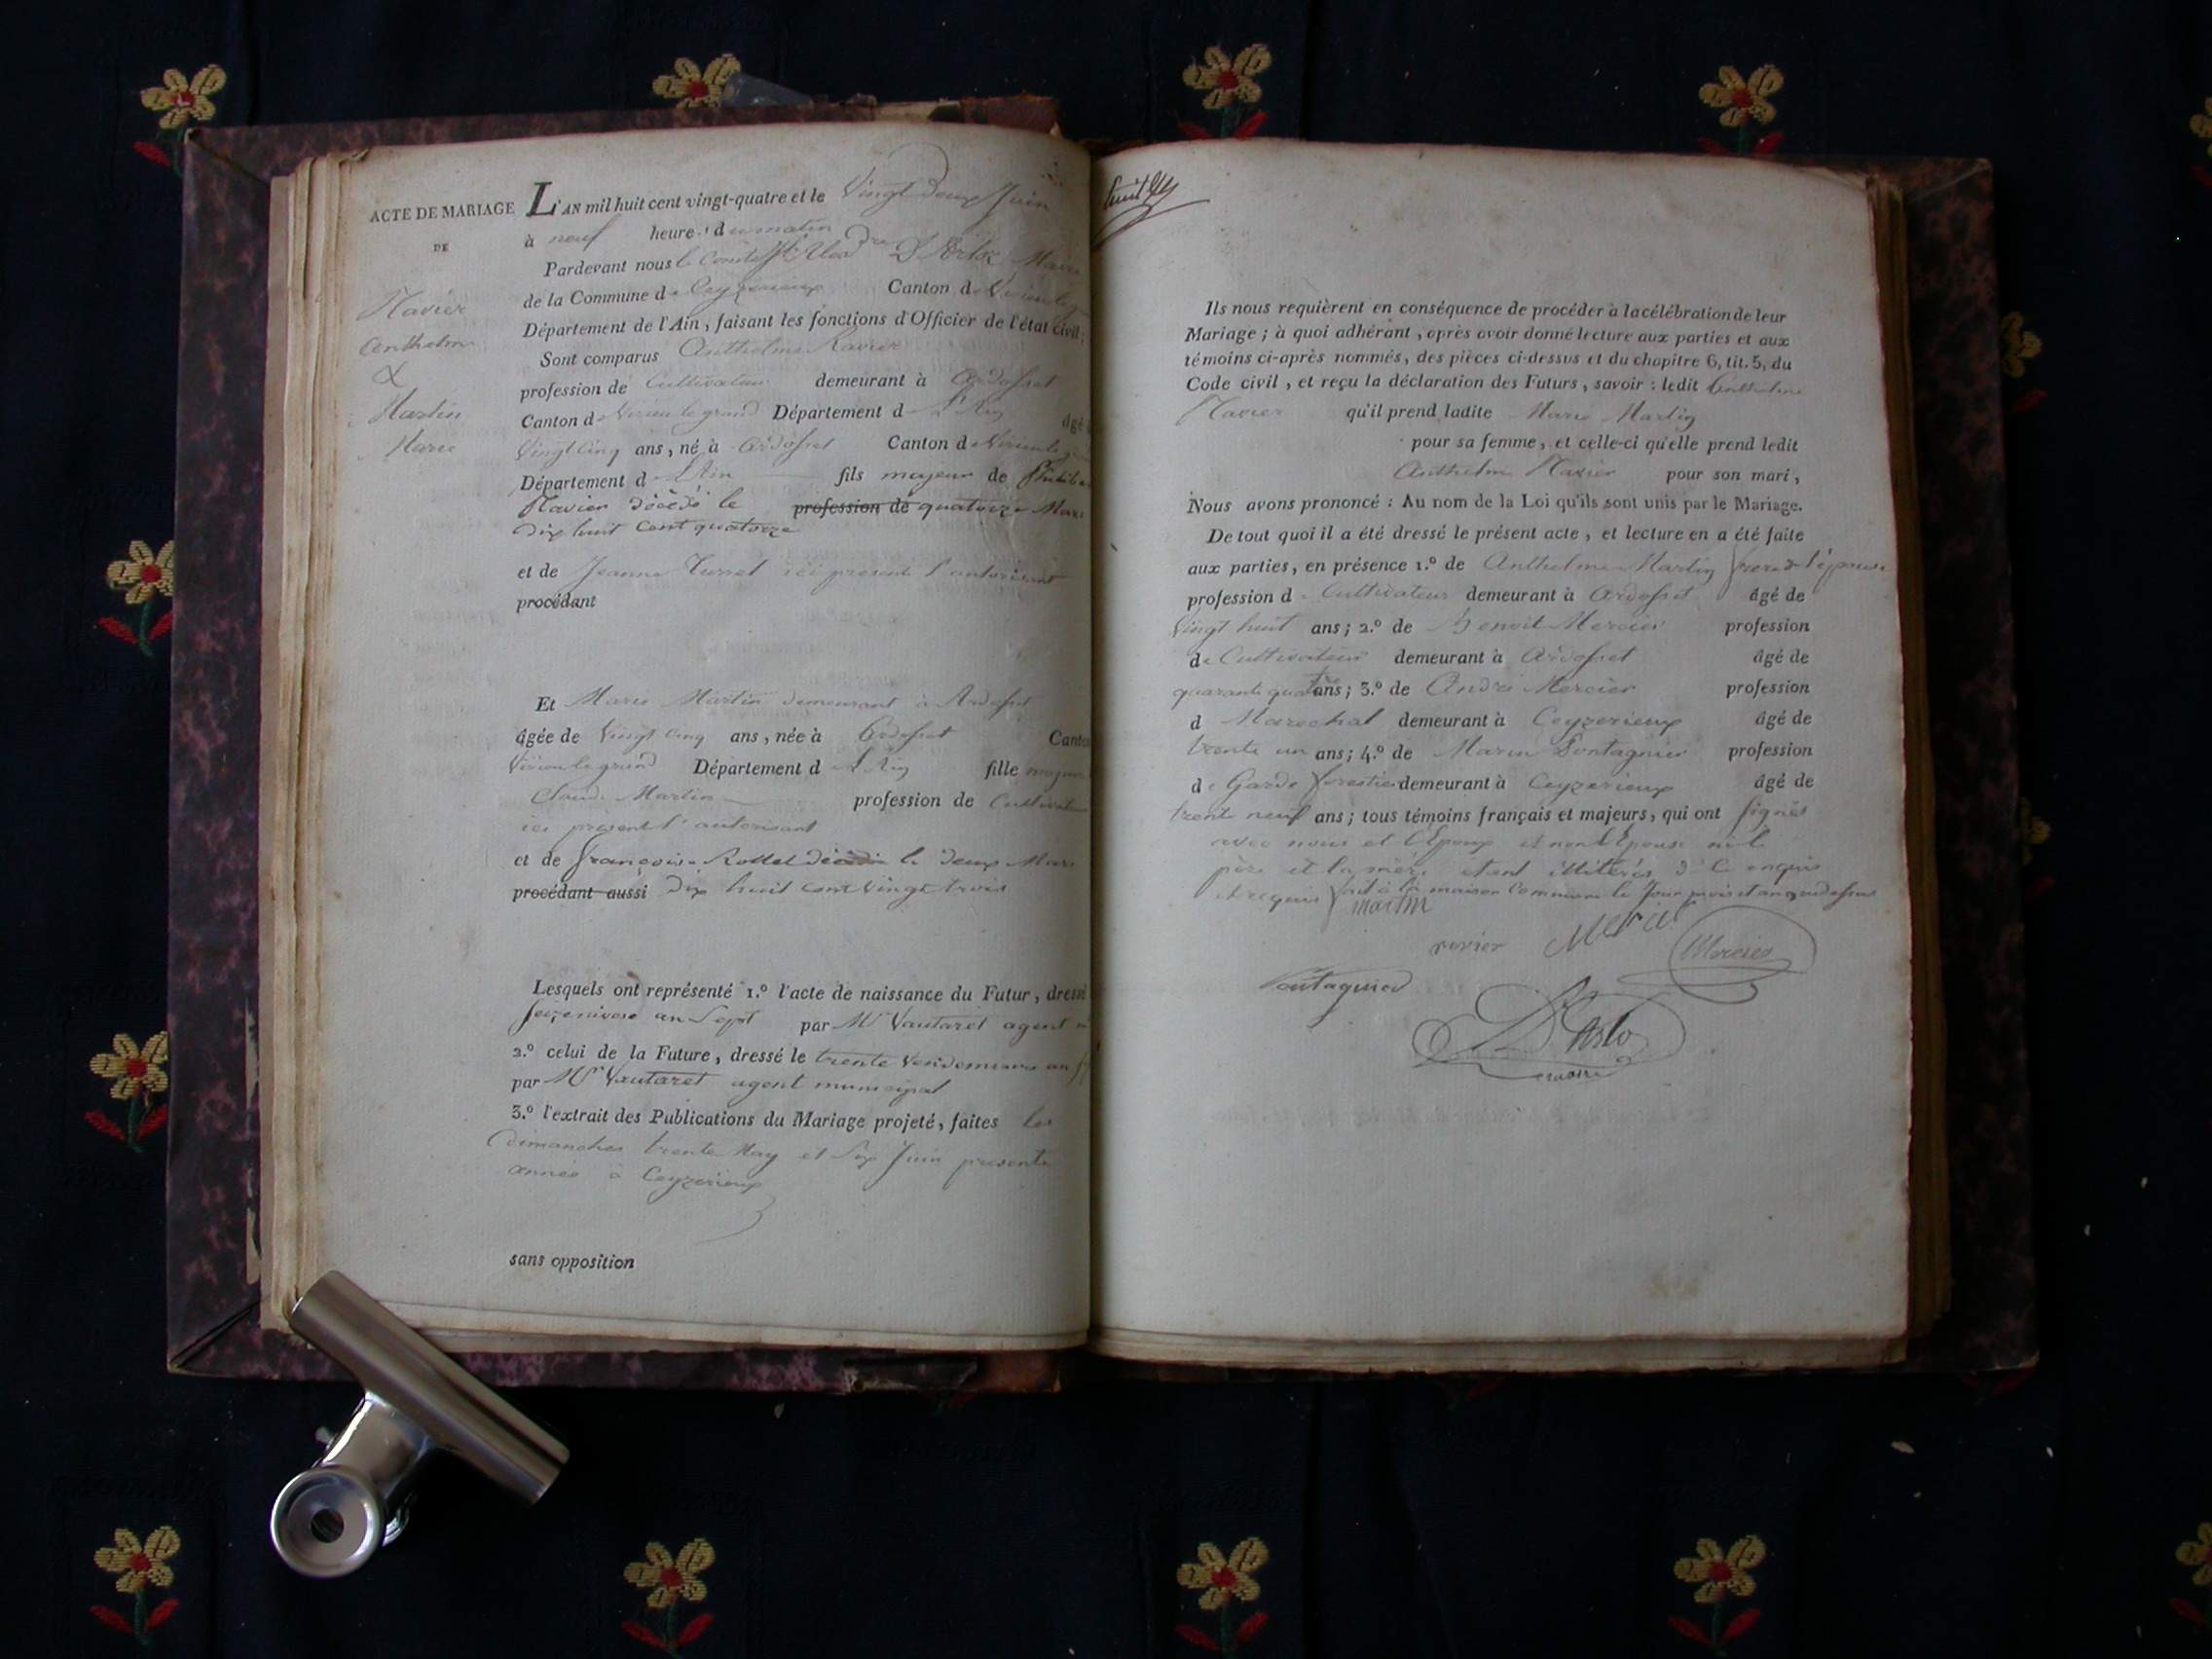 ACTE DE MARIAGE L'AN mil huit cent vingt-quatre et le Vingt Deux Juin
DE
à neuf heures du matin
Pardevant nous le Comte D'Arloz Maire
de la Commune de Ceyzerieux Canton de Virieu le
Département de l'Ain, faisant les fonctions d'Officier de l'état civil;
Ravier
Anthelme
&
Martin
Marie
Sont comparus Anthelme Ravier
profession de Cultivateur demeurant à Ardosset
Canton de Virieu le grand Département de L'Ain âgé
Vingt Cinq ans, né à Ardosset Canton de Virieu le
Département de L'Ain fils majeur de
Ravier décédé le profession de quatorze Mars
dix huit cent quatorze
et de Jeanne ici présente l'autorisant
procédant
Et Marie Martin demeurant à Ardosset
âgée de Vingt Cinq ans, née à Ardosset Canton
Virieu le grand Département de L'Ain fille majeure
Claude Martin profession de Cultivateur
ici présent l'autorisant
et de françoise décédée le deux Mars
procédant aussi dix huit cent vingt trois
Lesquels ont représenté 1.º l'acte de naissance du Futur, dressé
nivose an Sept par Mr Vautaret agent
2.º celui de la Future, dressé le trente Vendemiaire an
par Mr Vautaret agent municipal
3.º l'extrait des Publications du Mariage projeté, faites les
dimanches trente May et Six Juin présente
année à Ceyzerieux
sans opposition
Ils nous requièrent en conséquence de procéder à la célébration de leur
Mariage; à quoi adhérant, après avoir donné lecture aux parties et aux
témoins ci-après nommés, des pièces ci-dessus et du chapitre 6, tit. 5, du
Code civil, et reçu la déclaration des Futurs, savoir: ledit Anthelme
Ravier qu'il prend ladite Marie Martin
pour sa femme, et celle-ci qu'elle prend ledit
Anthelme Ravier pour son mari,
Nous avons prononcé: Au nom de la Loi qu'ils sont unis par le Mariage.
De tout quoi il a été dressé le présent acte, et lecture en a été faite
aux parties, en présence 1.º de Anthelme Martin frere de l'épouse
profession de Cultivateur demeurant à Ardosset âgé de
Vingt huit ans; 2.º de Benoit Mercier profession
de Cultivateur demeurant à Ardosset âgé de
quarante quatre ans; 3.º de André Mercier profession
d Marechal demeurant à Ceyzerieux âgé de
trente un ans; 4.º de Marin Pontagnier profession
de Garde forestier demeurant à Ceyzerieux âgé de
trente neuf ans; tous témoins français et majeurs, qui ont signés
avec nous et l'Epoux et non l'Epouse ni le
père et la mère étant illitérés de ce enquis
et requis fait à la maison Commune le Jour mois et an que dessus
martin
ravier Mercier
Mercier
Pontagnier
D'Arlo
maire